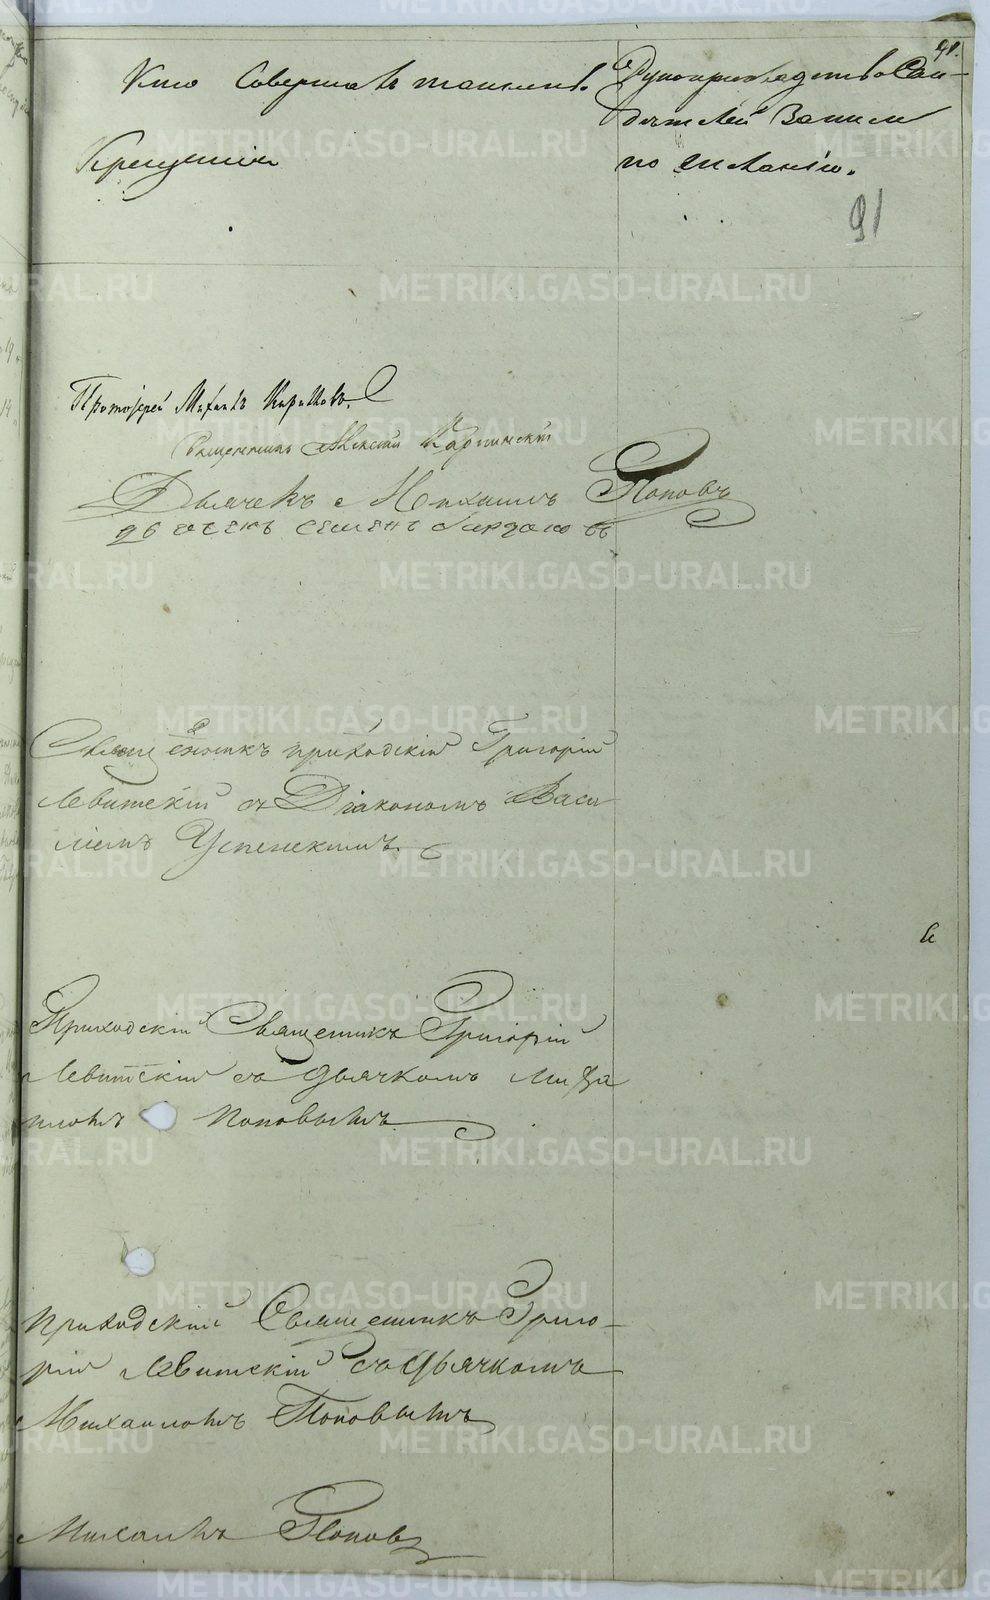 91.
Кто Совершалъ таинств. Рукоприкладство Сви-
Крещенія
дѣтелей Записи
по желанію.
91
Протоіерей Михаилъ Кирилловъ.
Священникъ Алексій Карпинскій
Дьячекъ Михаилъ Поповъ
Семенъ
Священникъ приходскій Григорій
Левитскій съ Діакономъ Васи
ліемъ Успенскимъ.
Приходскій Священникъ Григорій
Левитскій съ дьячкомъ Миха
иломъ Поповымъ
приходскій Священникъ Григо-
рій Левитскій съ Дьячкомъ
Михаиломъ Поповымъ
Михаилъ Поповъ
METRIKI.GASO-URAL.RU